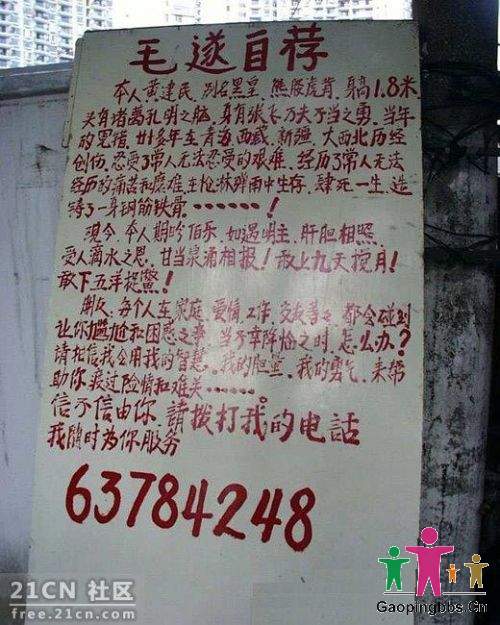 毛遂自荐
本人黄建民、别名黑皇、熊腰虎背、身高1.8米.
头有诸葛孔明之脑,身有张飞万夫不当之勇,当年
的冤猎,廿多年在青海西藏、新疆、大西北历经
创伤,忍受了常人无法忍受的艰难,经历了常人无法
经历的痛苦和磨难,在枪林弹雨中生存,肆死一生,造
铸了一身钢筋铁骨……!
现今,本人期吟伯乐,如遇明主,肝胆相照,
受人滴水之恩,甘当泉涌相报!敢上九天揽月!
敢下五洋捉鳖!
朋友,每个人在家庭、爱情、工作、交友等之都会碰到
让你尴尬和困惑之事,当不幸降临之时,怎么办?
请相信我会用我的智慧、我的胆量、我的勇气,来帮
助你渡过险情和难关……。
信不信由你,請拨打我的电話
我随时为你服务
63784248
21CN 社区
free.21cn.com
Gaopingbbs.Cn